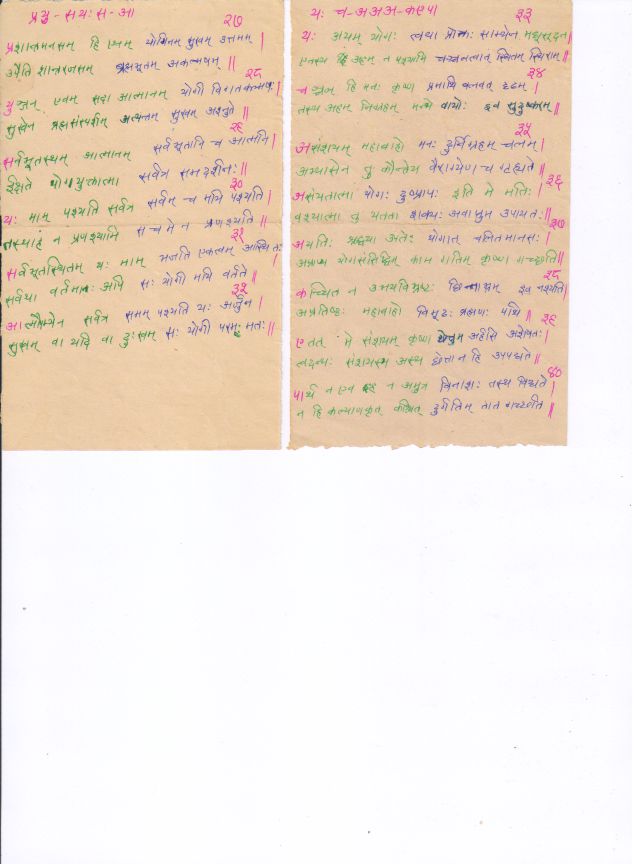 प्रयु-सयः स-आ
२७
प्रशान्तमनसम् हि एनम् योगिनम् सुखम् उत्तमम् |
उपैति शान्तरजसम् ब्रह्मभूतम् अकल्मषम् ||
२८
युञ्जन् एवम् सदा आत्मानम् योगी विगतकल्मषः |
सुखेन ब्रह्मसंस्पर्शम् अत्यन्तम् सुखम् अश्नुते ||
२९
सर्वभूतस्थम् आत्मानम् सर्वभूतानि च आत्मनि |
ईक्षते योगयुक्तात्मा सर्वत्र समदर्शीनः ||
३०
यः माम् पश्यति सर्वत्र सर्वम् च मयि पश्यति |
तस्याहं न प्रणश्यामि स च मे न प्रणश्यति ||
३१
सर्वभूतस्थितम् यः माम् भजति एकत्वम् आस्थितः |
सर्वथा वर्तमानः अपि सः योगी मयि वर्तते ||
३२
आत्मौपम्येन सर्वत्र समम् पश्यति यः अर्जुन |
सुखम् वा यदि वा दुःखम् सः योगी परमः मतः ||
यः च-अअअ-कएपा
३३
यः अयम् योगः त्वया प्रोक्तः साम्येन मधुसूदन |
एतस्य अहम् न पश्यामि चञ्चलत्वात् स्थितिम् स्थिराम् ||
३४
चञ्चलम् हि मनः कृष्ण प्रमाथि बलवत् दृढम् |
तस्य अहम् निग्रहम् मन्ये वायोः इव सुदुष्करम् ||
३५
असंशयम् महाबाहो मनः दुर्निग्रहम् चलम् |
अभ्यासेन तु कौन्तेय वैराग्येण च गृह्यते ||
३६
असंयतात्मा योगः दुष्प्रापः इति मे मतिः |
वश्यात्मा तु यतता शक्यः अवाप्तुम् उपायतः ||
३७
अयतिः श्रद्धया उपेतः योगात् चलितमानसः |
अप्राप्य योगसंसिद्धिम् काम् गतिम् कृष्ण गच्छति ||
३८
कच्चित् न उभयविभ्रष्टः छिन्नाभ्रम् इव नश्यति |
अप्रतिष्ठः महाबाहो विमूढः ब्रह्मणः पथि ||
३९
एतत् मे संशयम् कृष्ण छेत्तुम् अर्हसि अशेषतः |
त्वदन्यः संशयस्य अस्य छेत्ता न हि उपपद्यते ||
४०
पार्थ न एव इह न अमुत्र विनाशः तस्य विद्यते |
न हि कल्याणकृत् कश्चित् दुर्गतिम् तात गच्छति ||